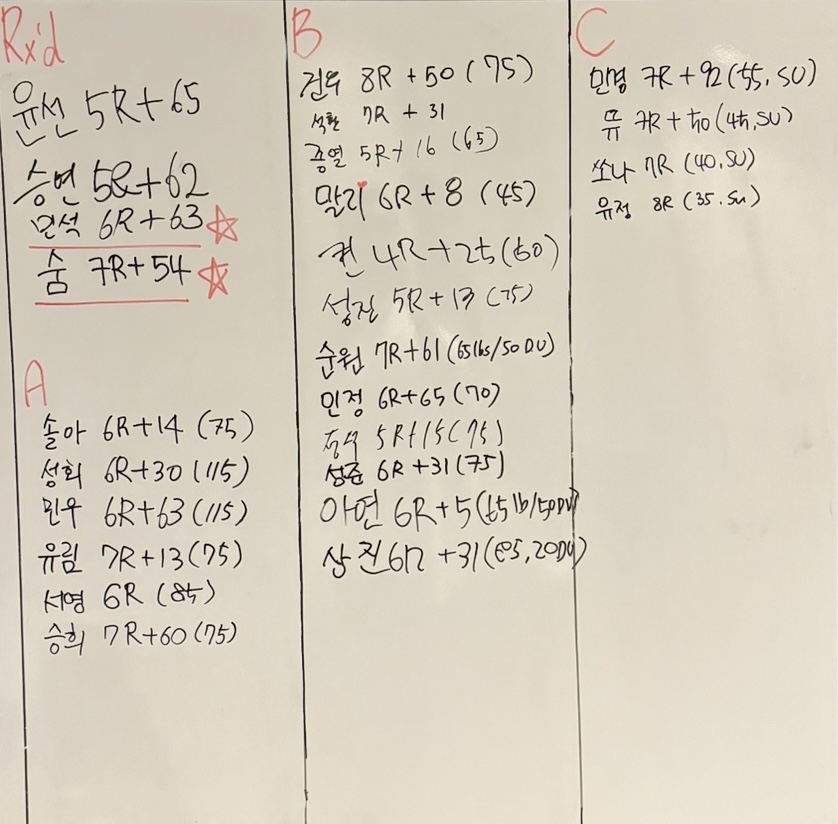 Rx'd
윤선 5R+65
승연 5R+62
민석 6R+63 ☆
숨 7R+54 ☆
A
솔아 6R+14 (75)
성회 6R+30 (115)
민우 6R+63 (115)
유림 7R+13 (75)
서영 6R (85)
승희 7R+60 (75)
B
건우 8R +50 (75)
석환 7R + 31
종열 5R+ 16 (65)
말리 6R + 8 (45)
퀸 4R+25 (60)
성진 5R+13 (75)
순원 7R+61 (65lbs/50 DU)
민정 6R+65 (70)
5R+15 (75)
성준 6R +31 (75)
아연 6R+5 (65 lb/50DU)
상진 6R +31 (20DU)
C
민영 7R+92 (55, SU)
뮤 7R+50 (45, SU)
쏘나 7R (40, SU)
유정 8R (35. Su)